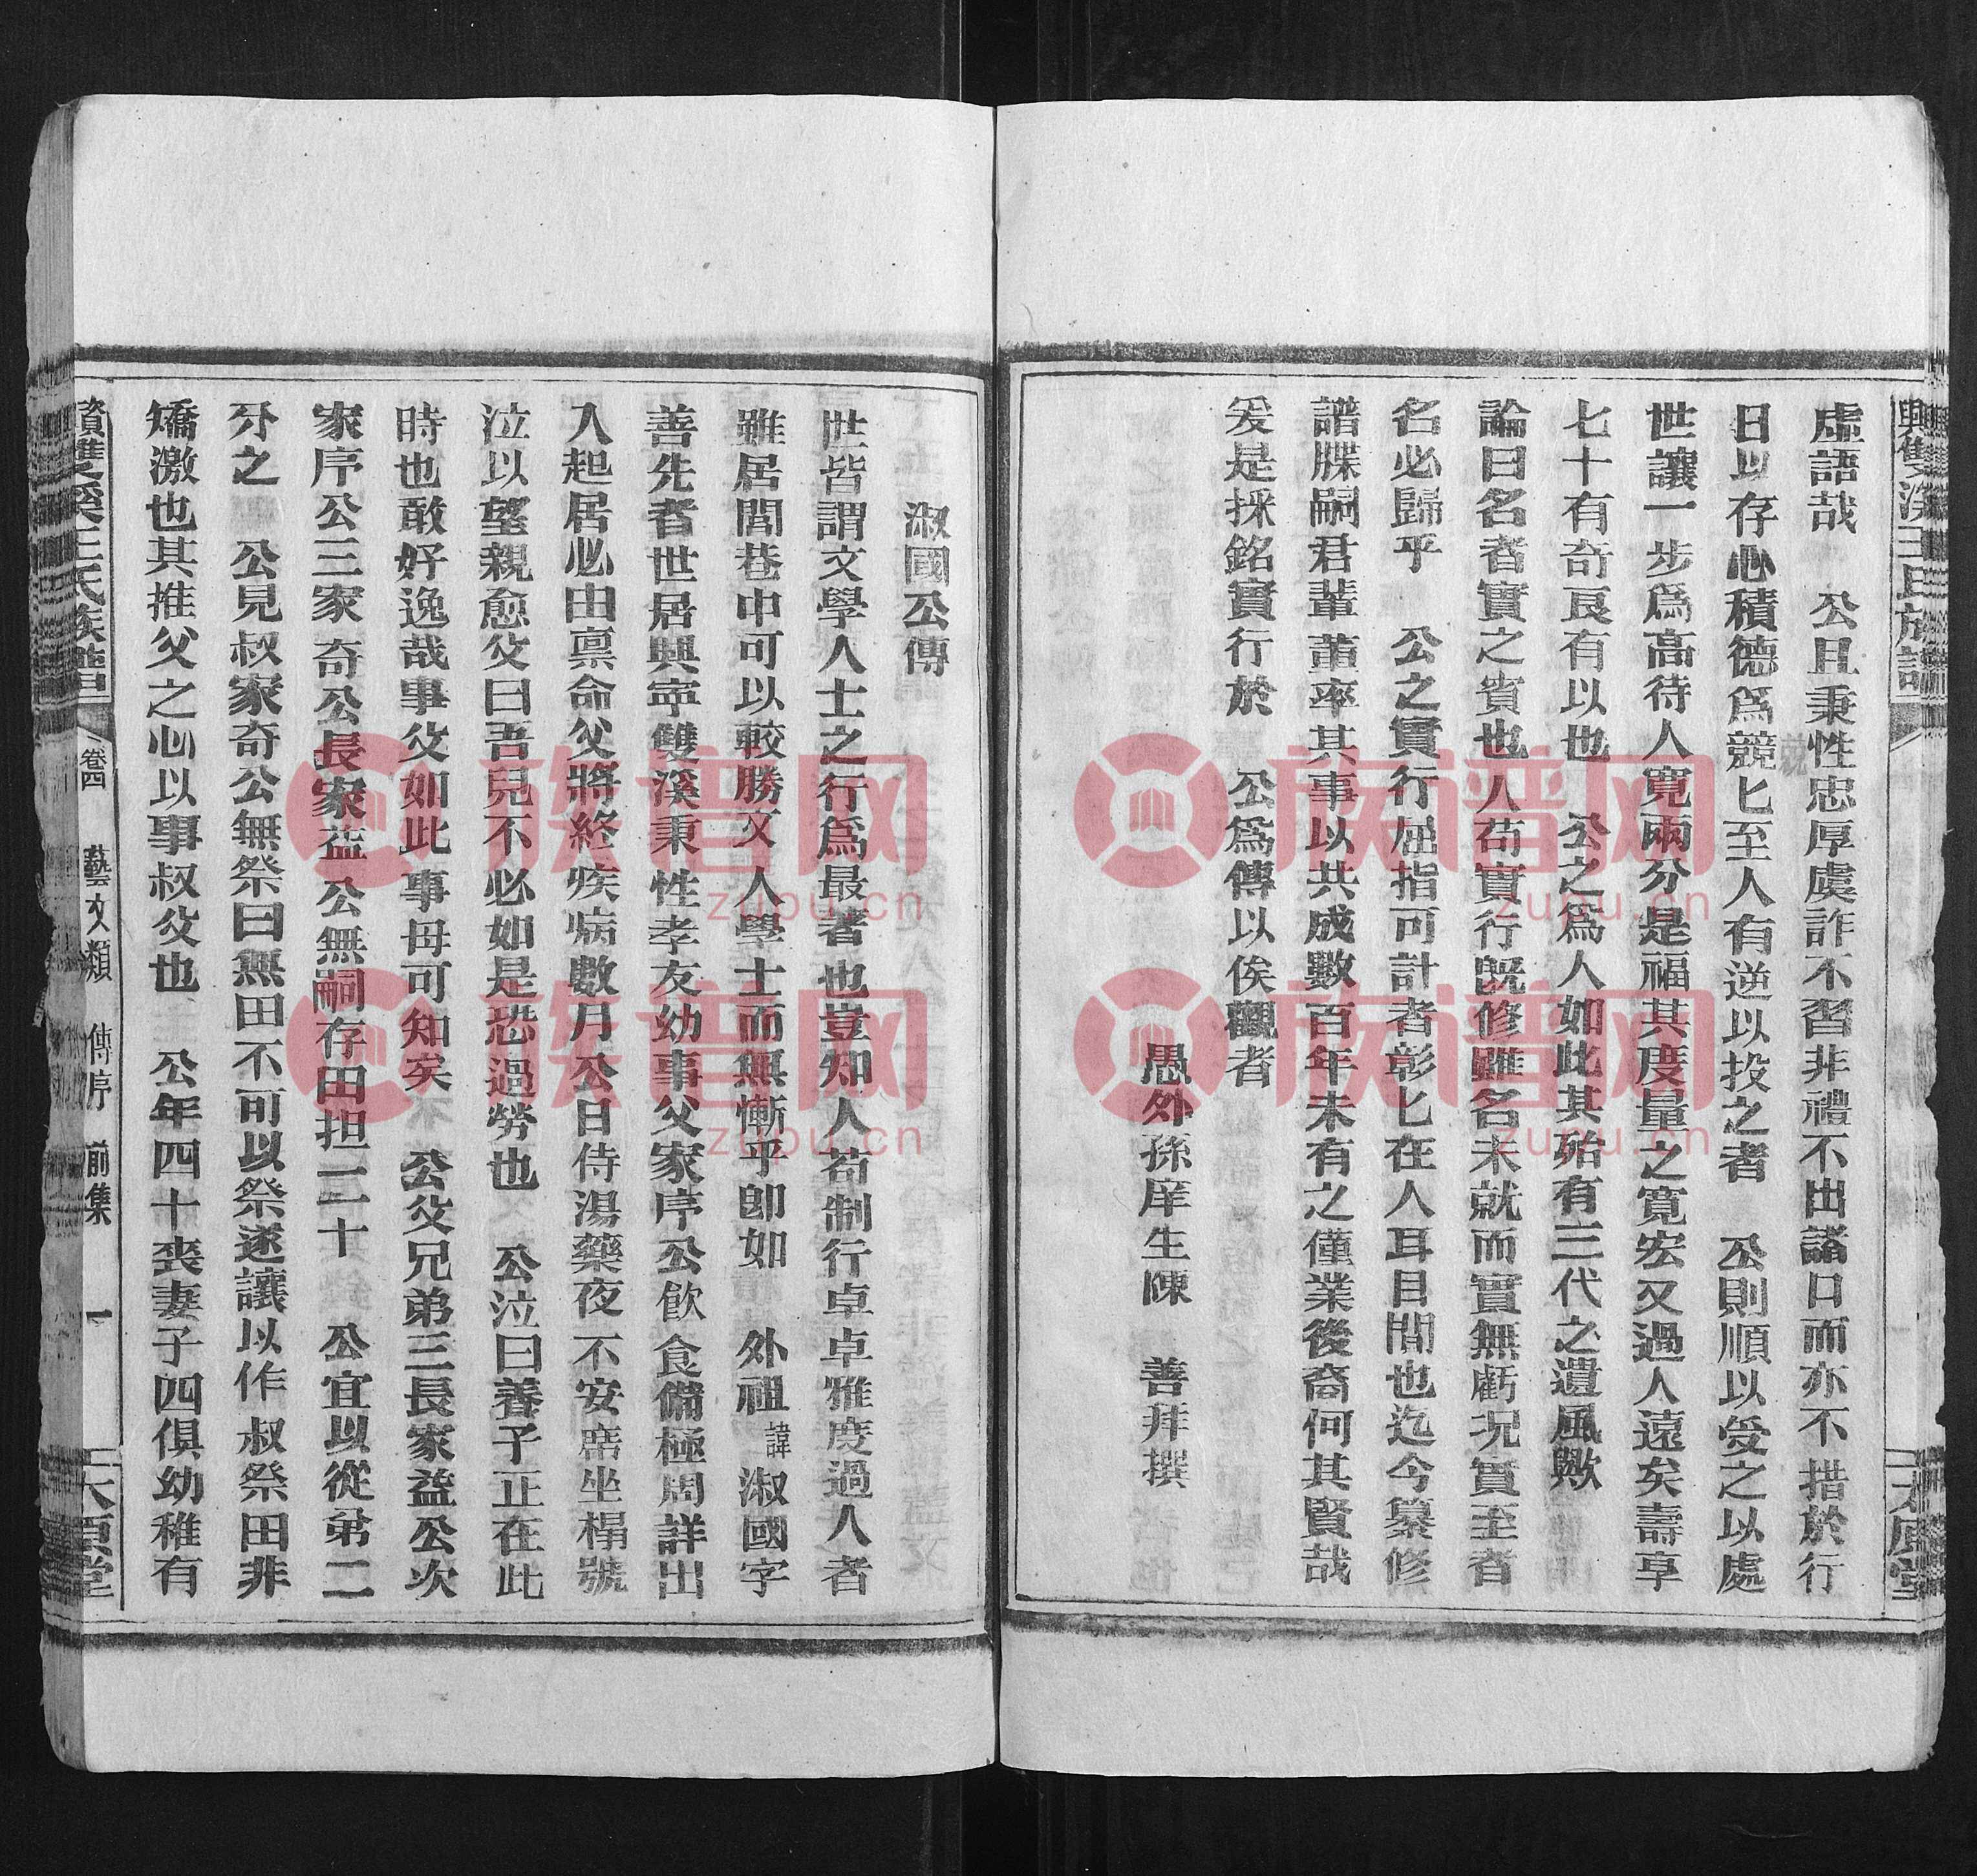 虛語哉　公且秉性忠厚虞詐不習非禮不出諸口而亦不措於行
日以存心積德爲競匕至人有逆以投之者　公則順以受之以處
世讓一步爲高待人寬兩分是福其度量之寬宏又過人遠矣壽享
七十有奇良有以也　公之爲人如此其殆有三代之遺風歟
論曰名者實之賓也人苟實行旣修雖名未就而實無虧況實至者
名必歸乎　公之實行屈指可計者彰匕在人耳目間也迄今纂修
譜牒嗣君輩董率其事以共成數百年未有之僅業後裔何其賢哉
爰是採銘實行於　公爲傳以俟觀者
愚外孫庠生陳　善拜撰
淑國公傳
世皆謂文學人士之行爲最著也豈知人苟制行卓卓雅度過人者
雖居閭巷中可以較勝文人學士而無慚乎卽如　外祖諱淑國字
善先者世居興寧雙溪秉性孝友幼事父家序公飲食備極周詳出
入起居必由禀命父將終疾病數月公日侍湯藥夜不安席坐榻號
泣以望親愈父曰吾兒不必如是恐過勞也　公泣曰養子正在此
時也敢好逸哉事父如此事母可知矣　公父兄弟三長家益公次
家序公三家奇公長家益公無嗣存田担二十　公宜以從弟二
分之　公見叔家奇公無祭曰無田不可以祭遂讓以作叔祭田非
矯激也其推父之心以事叔父也　公年四十喪妻子四俱幼稚有
興雙溪王氏族譜
太原堂
資雙溪王氏族譜
卷四
藝文類　傳序　前集　一
太原堂
族谱网
zupu.cn
族谱网
zupu.cn
族谱网
zupu.cn
族谱网
zupu.cn